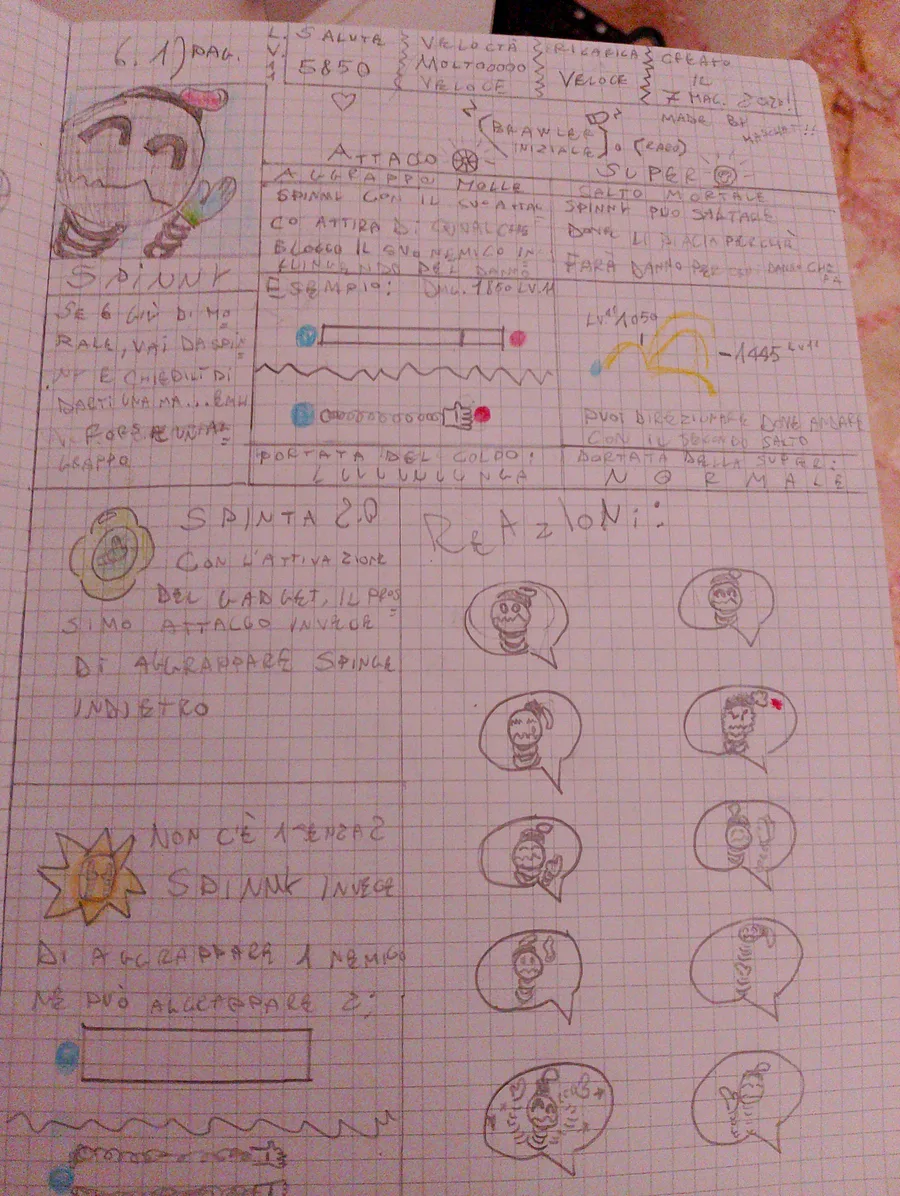 6.1) PAG.
LV. 11
SALUTE
5850
VELOCTÀ
MOLTOOOOO
VELOCE
RICARICA
VELOCE
CREATO
IL
7 MAG. 2020!
MADE BY
(BRAWLER
INIZIALE) o (RARO)
ATTACO
SUPER
AGGRAPPO MOLLE
SPINNY CON IL SUO ATTAC
CO ATTIRA DI QUALCHE
BLOCCO IL SUO NEMICO IN
FLINGENDO DEL DANNO
SALTO MORTALE
SPINNY PUO SALTARE
DOVE LI PIACIA PERCHÈ
FARÀ DANNO PER OGNI DANNO CHE
FA
SPINNY
SE 6 GIÙ DI MO
RALE, VAI DA SPIN
NY E CHIEDILI DI
DARTI UNA MA...EHM
FORSE UN AG
GRAPPO
ESEMPIO: DMG. 1850 LV.11
LV11 1050
-1445 LV11
PUOI DIREZIONARE DOVE ANDARE
CON IL SECONDO SALTO
PORTATA DEL COLPO:
LUUUUUUNGA
PORTATA DELLA SUPER:
NORMALE
SPINTA 2.0
CON L'ATTIVAZIONE
DEL GADGET, IL PROS
SIMO ATTACCO INVECE
DI AGGRAPPARE SPINGE
INDIETRO
REAZIONI:
NON C'È 1 SENZA 2
SPINNY INVECE
DI AGGRAPPARE 1 NEMICO
NE PUÒ AGGRAPPARE 2: